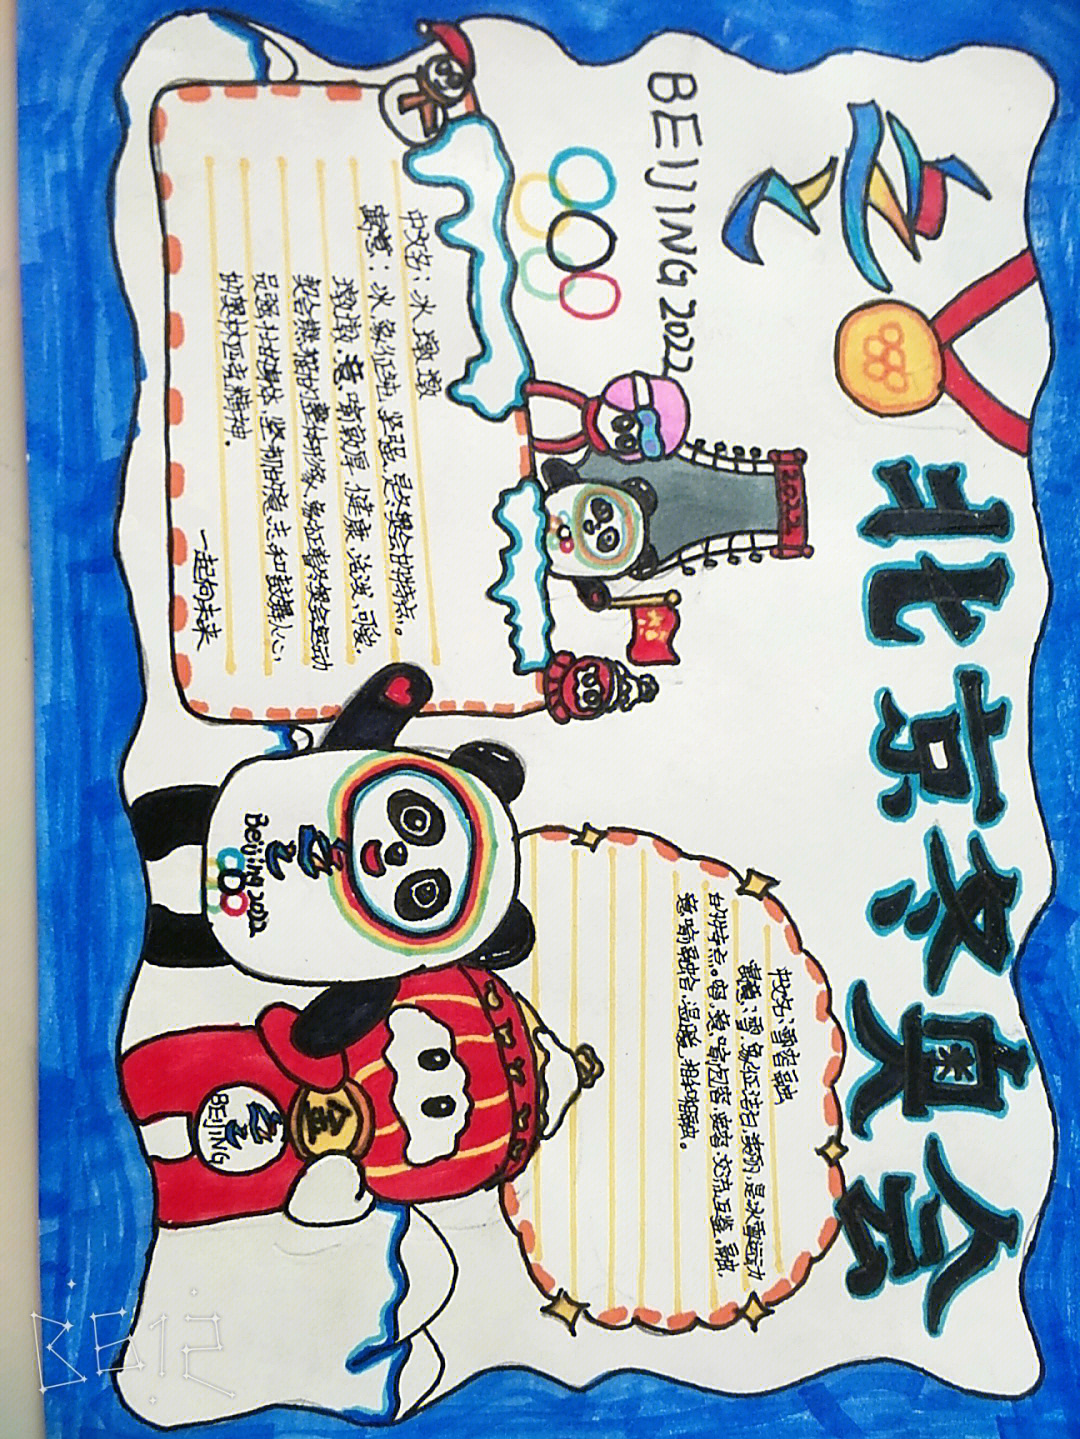 BEIJING 2022
北京冬奥会
2022
中文名：冰墩墩
寓意：冰，象征纯，坚强，是冬奥会的特点。
墩墩，意喻敦厚，健康，活泼，可爱，
契合熊猫的整体形象，象征着冬奥会运动
员强壮的身体，坚韧的意志和鼓舞人心，
的奥林匹克精神。
一起向未来
中文名：雪容融
寓意：雪，象征洁白，美丽，是冰雪运动
的特点。容，意喻包容，宽容，交流互鉴。融，
意喻融合，温暖，相知相融。
Beijing 2022
金
BEIJING
B612